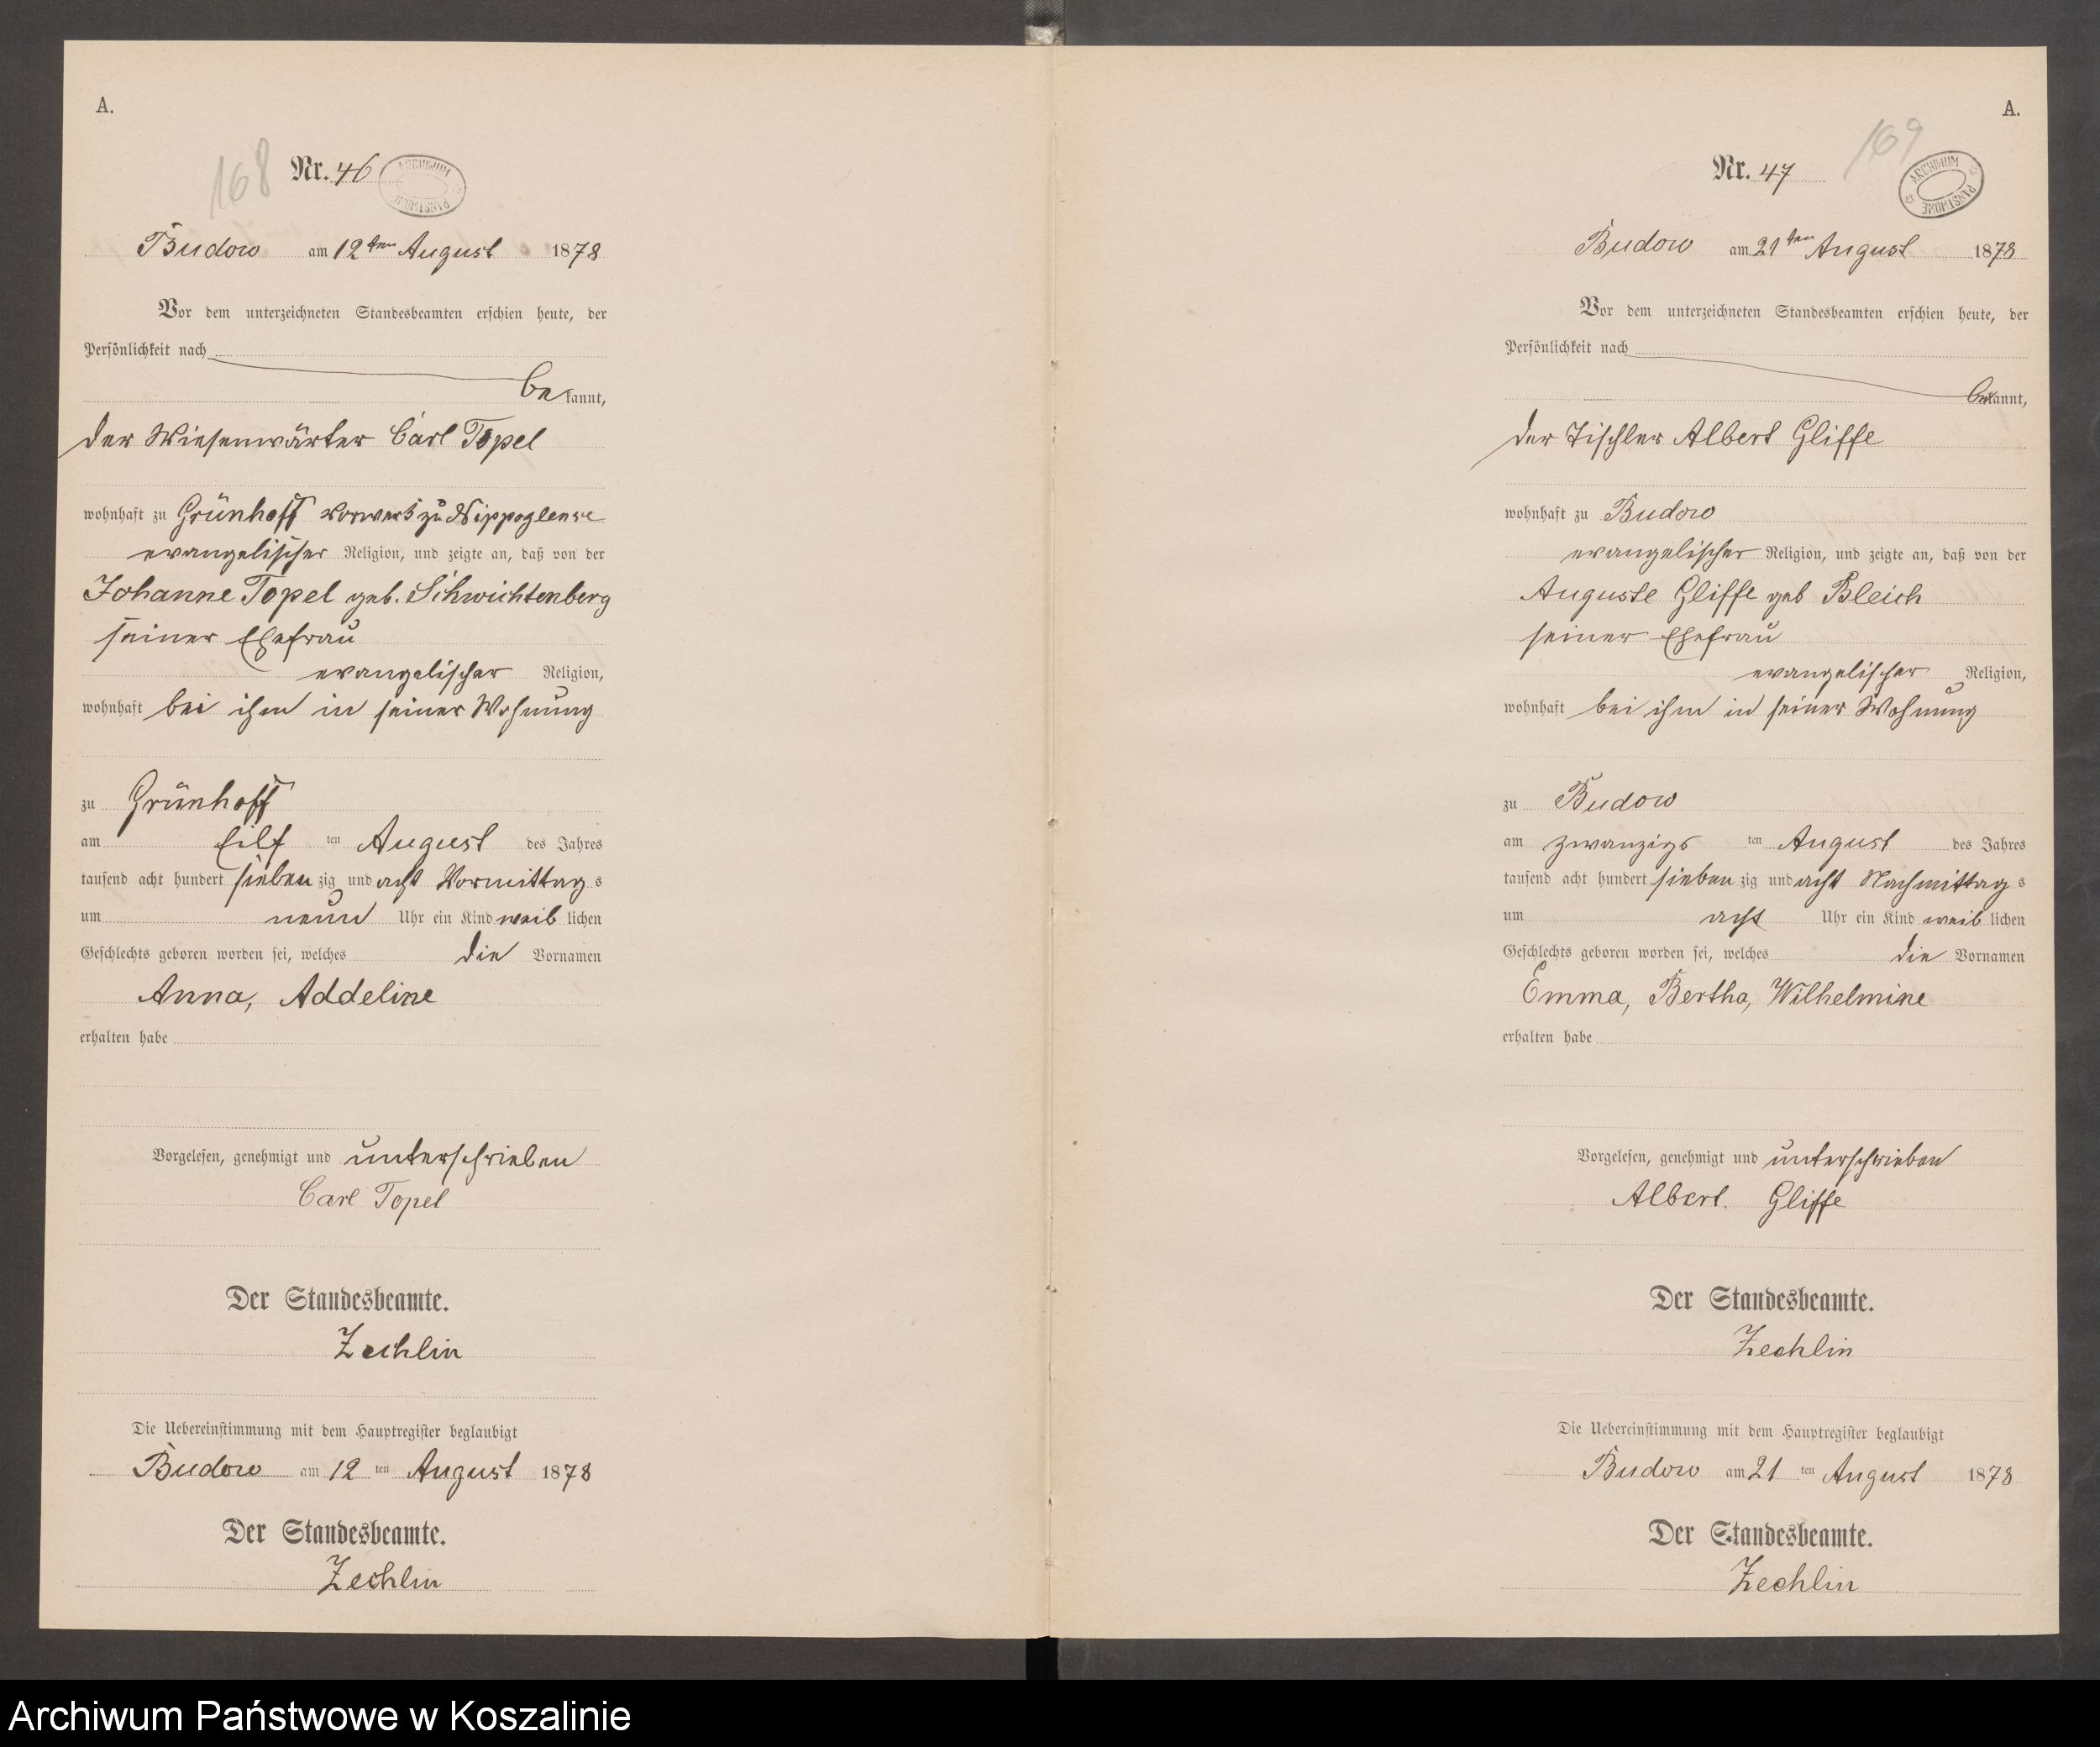 A.
168
Nr. 46
ARCHIWUM PAŃSTWOWE
Budow am 12ten August 1878
Vor dem unterzeichneten Standesbeamten erschien heute, der
Persönlichkeit nach
bekannt,
der Wiesenwärter Carl Topel
wohnhaft zu Grünhoff Vorwerk zu Nippoglense
evangelischer Religion, und zeigte an, daß von der
Johanne Topel geb. Schwichtenberg
seiner Ehefrau
evangelischer Religion,
wohnhaft bei ihm in seiner Wohnung
zu Grünhoff
am Eilf ten August des Jahres
tausend acht hundert sieben zig und acht Vormittag s
um neun Uhr ein Kind weib lichen
Geschlechts geboren worden sei, welches die Vornamen
Anna, Addeline
erhalten habe
Vorgelesen, genehmigt und unterschrieben
Carl Topel
Der Standesbeamte.
Zechlin
Die Uebereinstimmung mit dem Hauptregister beglaubigt
Budow am 12 ten August 1878
Der Standesbeamte.
Zechlin
A.
169
Nr. 47
ARCHIWUM PAŃSTWOWE
Budow am 21ten August 1878
Vor dem unterzeichneten Standesbeamten erschien heute, der
Persönlichkeit nach
bekannt,
der Tischler Albert Gliffe
wohnhaft zu Budow
evangelischer Religion, und zeigte an, daß von der
Auguste Gliffe geb Bleich
seiner Ehefrau
evangelischer Religion,
wohnhaft bei ihm in seiner Wohnung
zu Budow
am zwanzigs ten August des Jahres
tausend acht hundert sieben zig und acht Nachmittag s
um acht Uhr ein Kind weib lichen
Geschlechts geboren worden sei, welches die Vornamen
Emma, Bertha, Wilhelmine
erhalten habe
Vorgelesen, genehmigt und unterschrieben
Albert. Gliffe
Der Standesbeamte.
Zechlin
Die Uebereinstimmung mit dem Hauptregister beglaubigt
Budow am 21 ten August 1878
Der Standesbeamte.
Zechlin
Archiwum Państwowe w Koszalinie